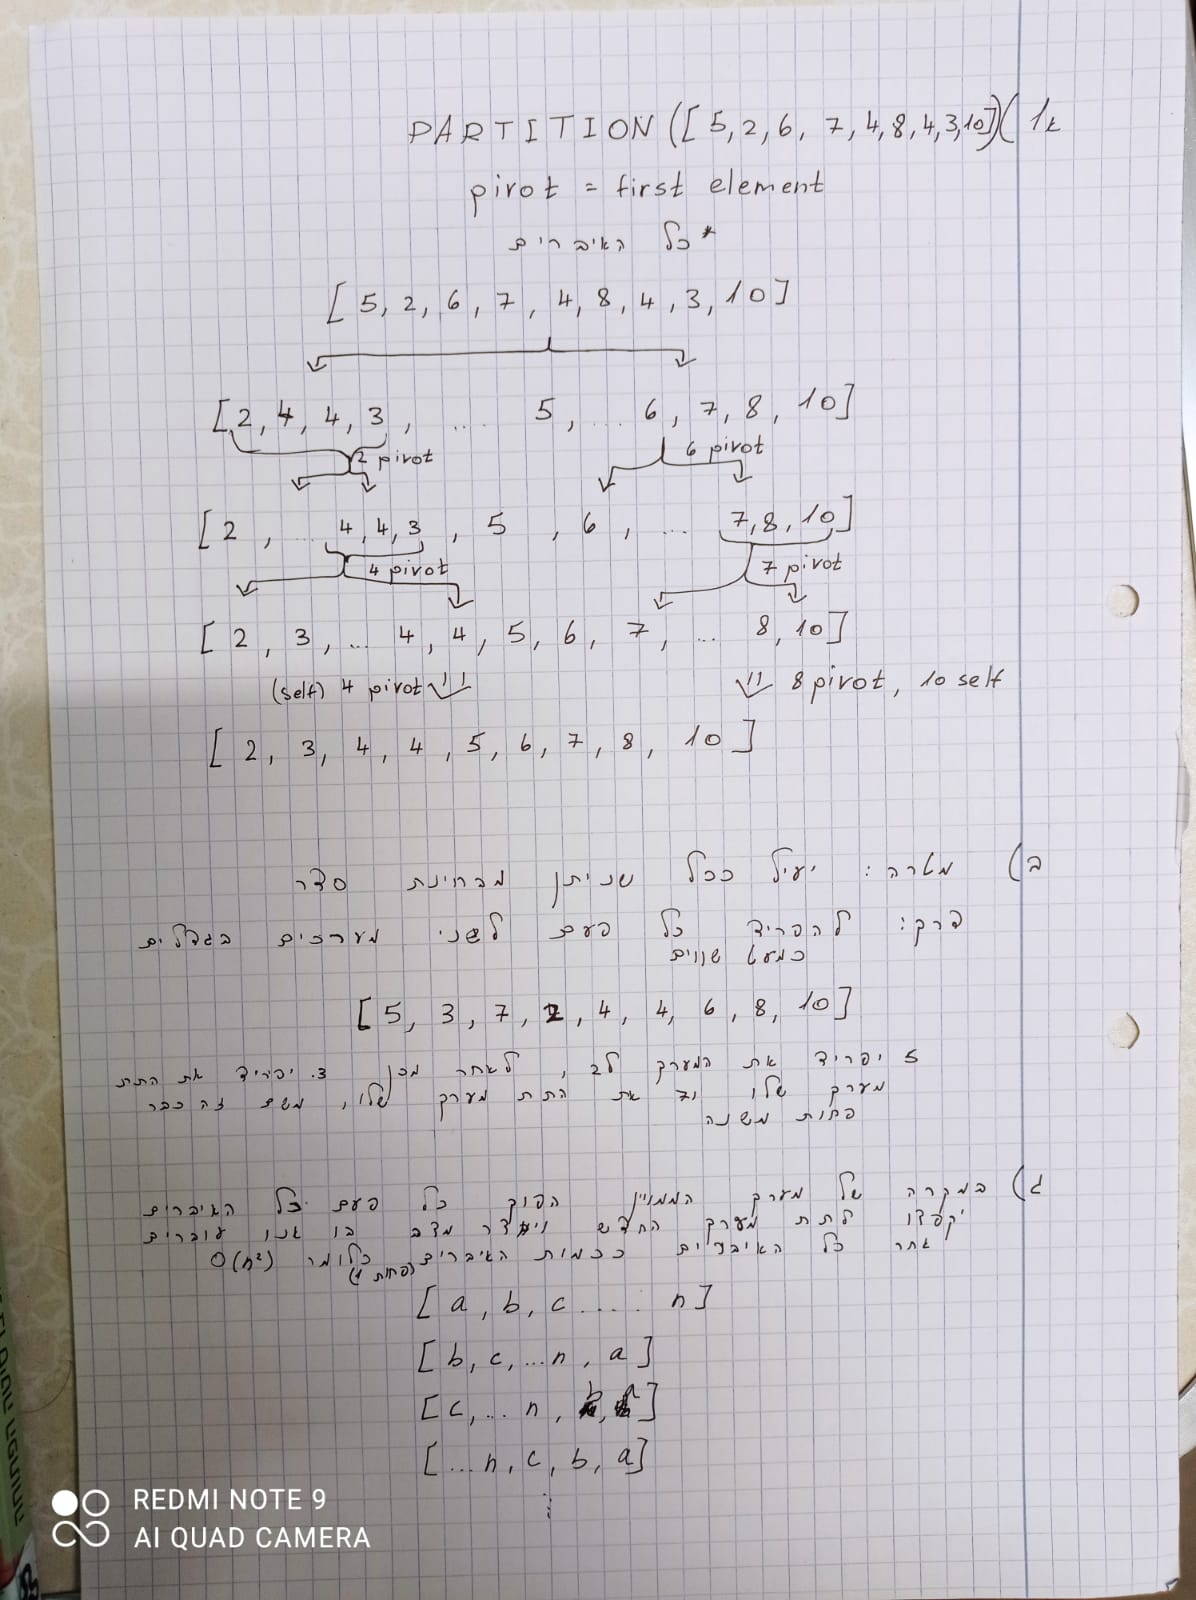 1א) PARTITION([5,2,6,7,4,8,4,3,10])
pivot = first element
*כל האיברים
[5, 2, 6, 7, 4, 8, 4, 3, 10]
[2, 4, 4, 3, .... 5, ... 6, 7, 8, 10]
2 pivot 6 pivot
[2, ... 4, 4, 3, 5, 6, ... 7, 8, 10]
4 pivot 7 pivot
[2, 3, ... 4, 4, 5, 6, 7, ... 8, 10]
(self) 4 pivot 8 pivot, 10 self
[2, 3, 4, 4, 5, 6, 7, 8, 10]
ב) מטרה: יעיל ככל שניתן מבחינת סדר
דרך: להפריד כל פעם לשני מערכים בגדלים
כמעט שווים
[5, 3, 7, 2, 4, 4, 6, 8, 10]
5 יפריד את המערך ל2, לאחר מכן 3 יפריד את התת
מערך שלו ו7 את התת מערך שלו, משם זה כבר
פחות משנה
ג) במקרה של מערך הממויין הפוך כל פעם כל האיברים
לתת מערך החדש מצב בו אנו עוברים
אחר כל האיברים ככמות האיברים כלומר O(n²)
(פחות 1)
[a, b, c ..... n]
[b, c, ... n, a]
[c, ... n, b, a]
[... n, c, b, a]
⋮
REDMI NOTE 9
AI QUAD CAMERA